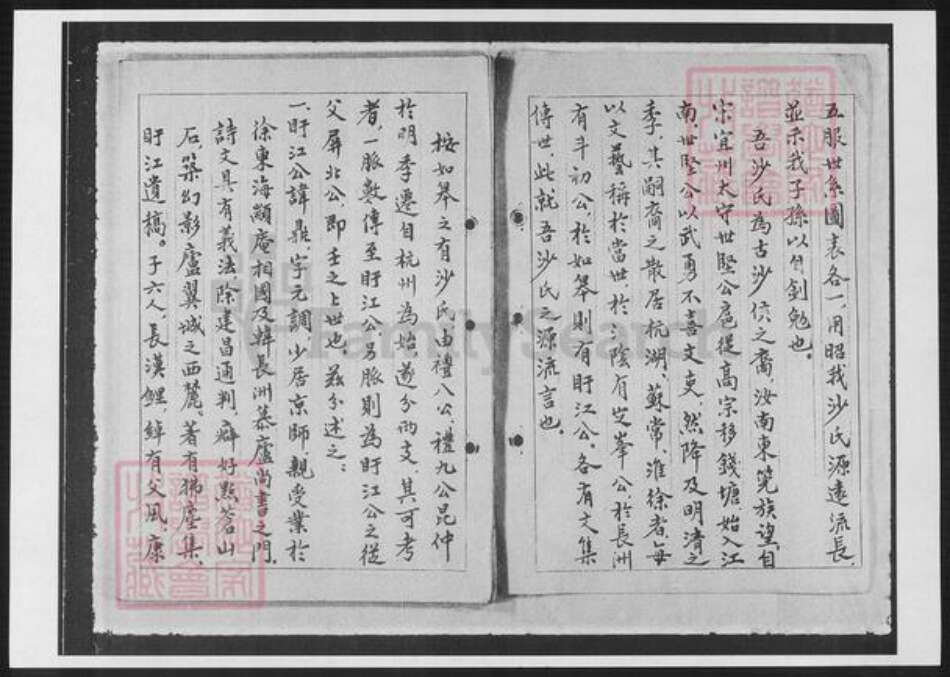 五服世系圖表各一,用昭我沙氏源遠流長,
並示我子孫以自劍勉也。
吾沙氏為古沙侯之裔,汝南東莞族望,自
宋宜州太守世堅公扈從高宗移錢塘,始入江
南,世堅公以武勇不喜文吏,然降及明清之
季,其嗣裔之散居杭湖、蘇常、淮徐者,每
以文藝稱於當世,於江陰有定峯公,於長洲
有斗初公,於如皋則有盱江公。各有文集
傳世,此就吾沙氏之源流言也。
按如皋之有沙氏,由禮八公、禮九公昆仲
於明季遷自杭州為始,遂分兩支,其可考
者,一脈數傳至盱江公,另脈則為盱江公之從
父屏北公,即壬之上世也,茲分述之:
一、盱江公諱鼎,字元調,少居京師,親受業於
徐東海、顓庵相國及韓長洲慕廬尚書之門,
詩文具有義法,除建昌通判,癖好點蒼山
石,築幻影廬翼城之西麓。著有拂塵集、
盱江遺稿。子六人,長漢鯉,綽有父風,康
FamilySearch